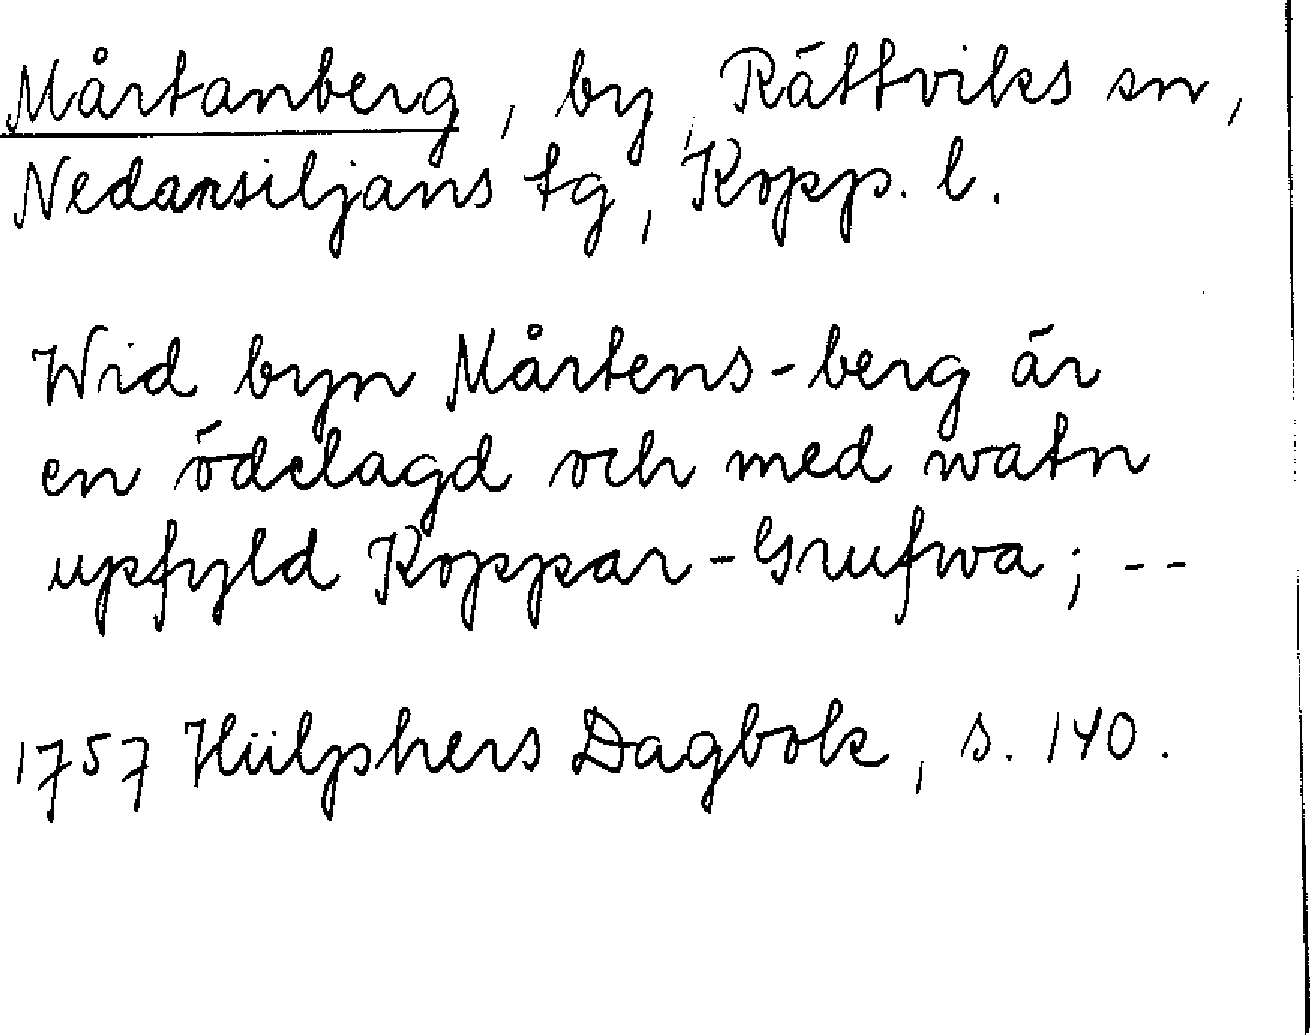 Mårtanberg, by, Rättviks sn,
Nedansiljans tg, Kopp. l.
Wid byn Mårtens-berg är
en ödelagd och med watn
upfyld Koppar-Grufwa; --
1757 Hülphers Dagbok, s. 140.